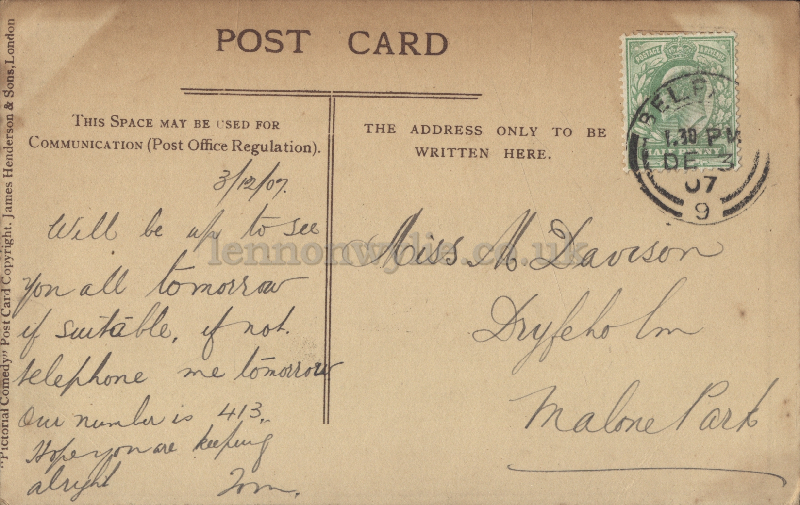 POST CARD
THIS SPACE MAY BE USED FOR
COMMUNICATION (Post Office Regulation).
THE ADDRESS ONLY TO BE
WRITTEN HERE.
"Pictorial Comedy" Post Card Copyright. James Henderson & Sons, London
POSTAGE
BELFA
1.30 PM
DE 3
07
9
3/12/07.
Will be up to see
you all tomorrow
if suitable, if not.
telephone me tomorrow
Our number is 413,,
Hope you are keeping
alright Tom.
Miss M. Davison
Dryfeholm
Malone Park
lennonwylie.co.uk